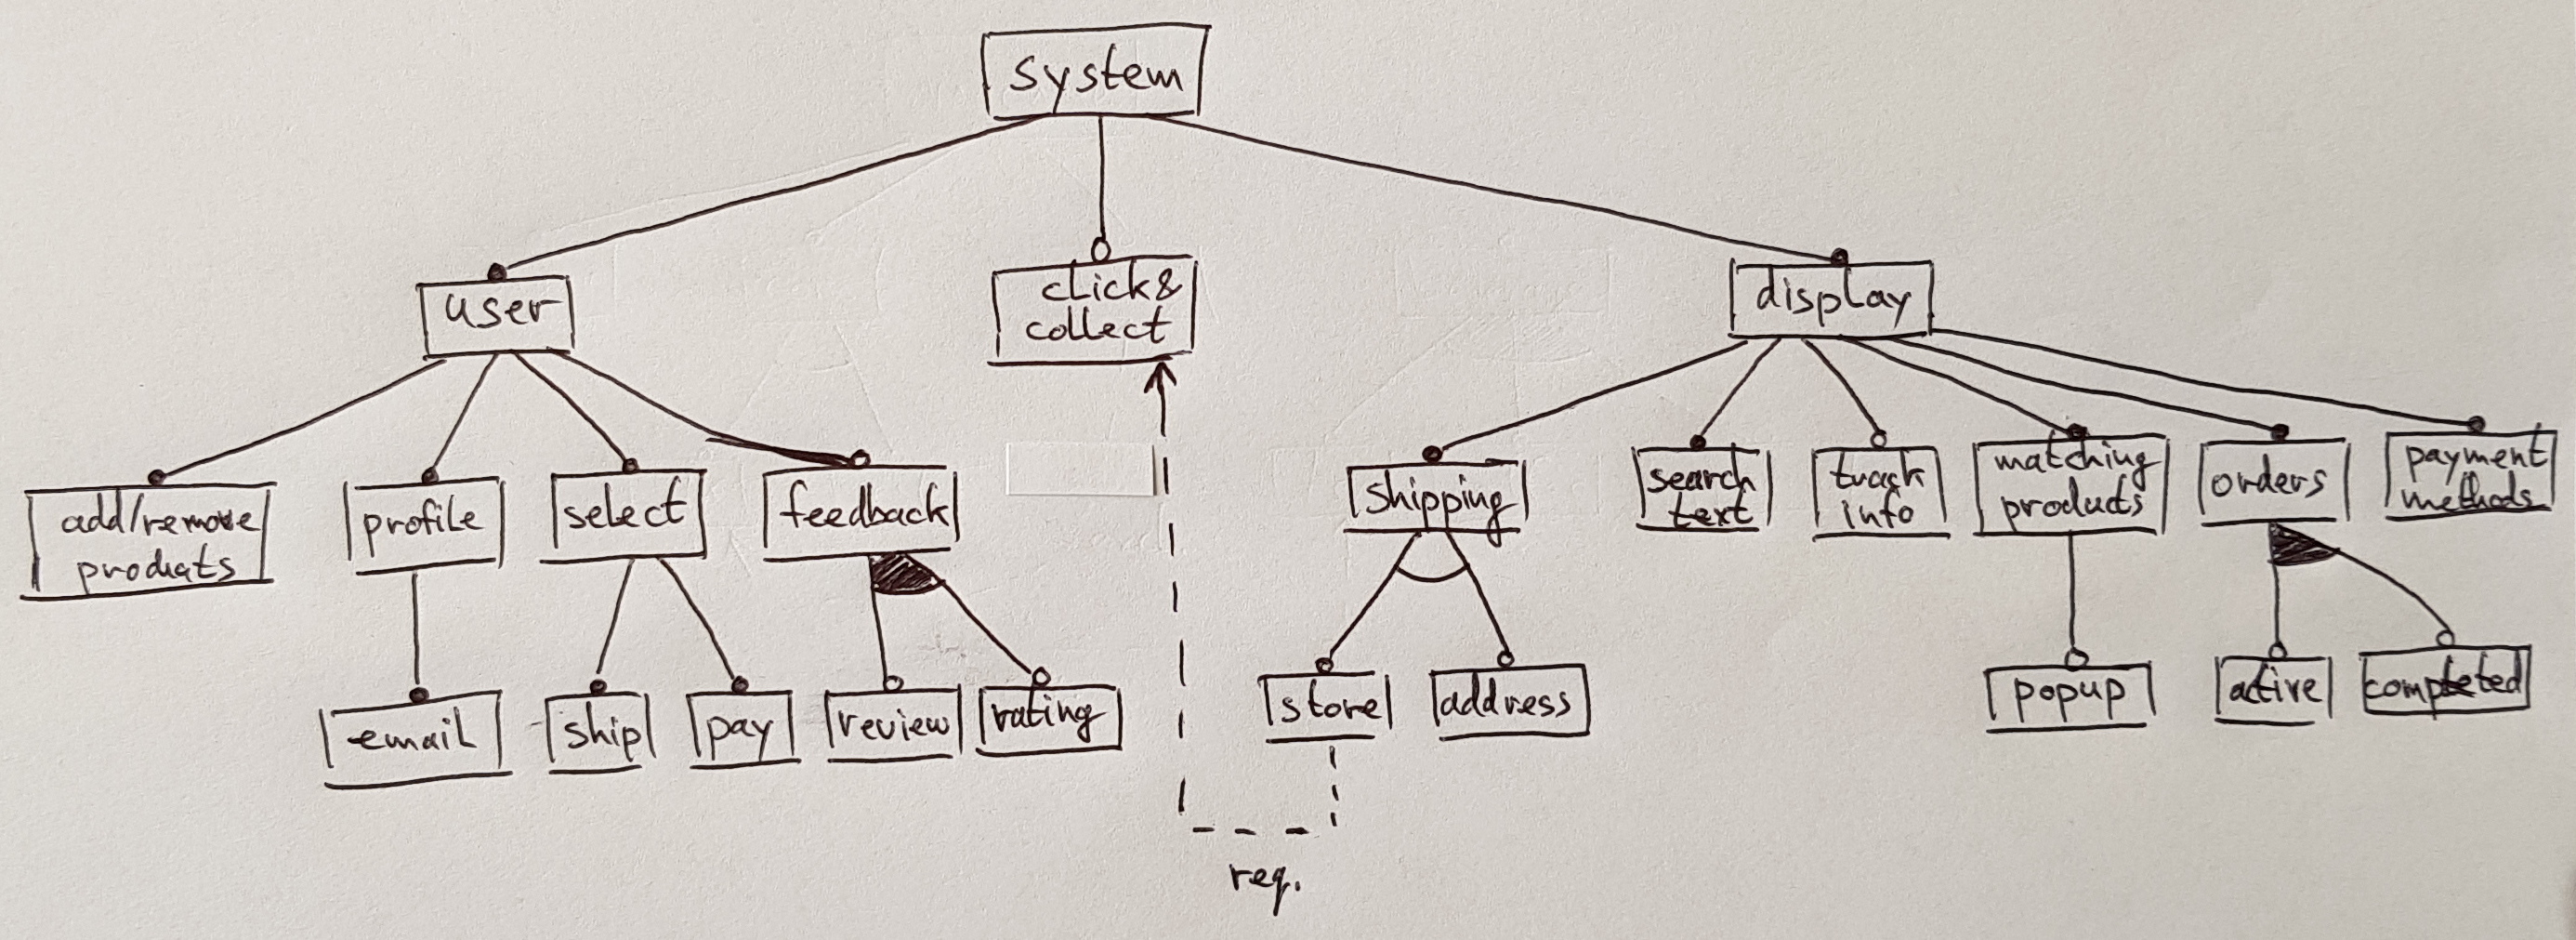 system
user
click&
collect
display
add/remove
products
profile
select
feedback
shipping
search
text
track
info
matching
products
orders
payment
methods
email
ship
pay
review
rating
store
address
popup
active
completed
req.